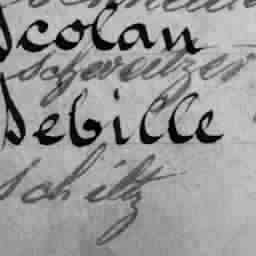 Scolan
Schweitzer
Sebille
Schiltz